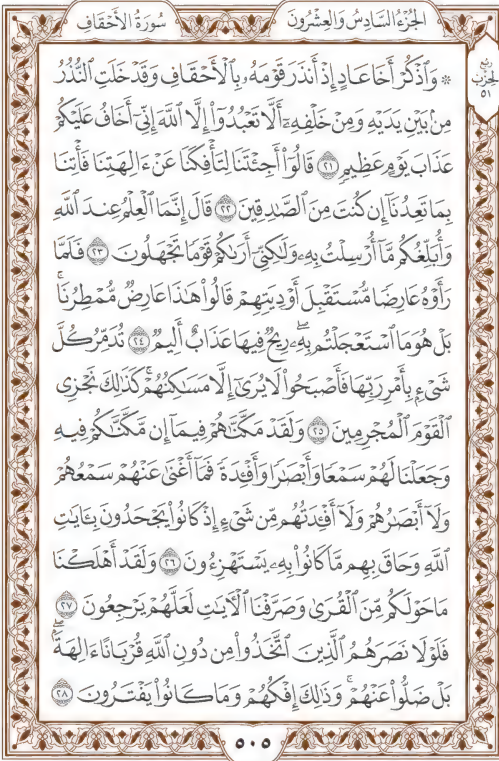 الجُزْءُ السَّادِسُ وَالعِشْرُونَ سُورَةُ الأَحْقَافِ
ربع
الحزب
٥١
۞ وَٱذْكُرْ أَخَا عَادٍ إِذْ أَنذَرَ قَوْمَهُۥ بِٱلْأَحْقَافِ وَقَدْ خَلَتِ ٱلنُّذُرُ
مِنۢ بَيْنِ يَدَيْهِ وَمِنْ خَلْفِهِۦٓ أَلَّا تَعْبُدُوٓا۟ إِلَّا ٱللَّهَ إِنِّىٓ أَخَافُ عَلَيْكُمْ
عَذَابَ يَوْمٍ عَظِيمٍ ٢١ قَالُوٓا۟ أَجِئْتَنَا لِتَأْفِكَنَا عَنْ ءَالِهَتِنَا فَأْتِنَا
بِمَا تَعِدُنَآ إِن كُنتَ مِنَ ٱلصَّٰدِقِينَ ٢٢ قَالَ إِنَّمَا ٱلْعِلْمُ عِندَ ٱللَّهِ
وَأُبَلِّغُكُم مَّآ أُرْسِلْتُ بِهِۦ وَلَٰكِنِّىٓ أَرَىٰكُمْ قَوْمًا تَجْهَلُونَ ٢٣ فَلَمَّا
رَأَوْهُ عَارِضًا مُّسْتَقْبِلَ أَوْدِيَتِهِمْ قَالُوا۟ هَٰذَا عَارِضٌ مُّمْطِرُنَا ۚ
بَلْ هُوَ مَا ٱسْتَعْجَلْتُم بِهِۦ ۖ رِيحٌ فِيهَا عَذَابٌ أَلِيمٌ ٢٤ تُدَمِّرُ كُلَّ
شَىْءٍۭ بِأَمْرِ رَبِّهَا فَأَصْبَحُوا۟ لَا يُرَىٰٓ إِلَّا مَسَٰكِنُهُمْ ۚ كَذَٰلِكَ نَجْزِى
ٱلْقَوْمَ ٱلْمُجْرِمِينَ ٢٥ وَلَقَدْ مَكَّنَّٰهُمْ فِيمَآ إِن مَّكَّنَّٰكُمْ فِيهِ
وَجَعَلْنَا لَهُمْ سَمْعًا وَأَبْصَٰرًا وَأَفْـِٔدَةً فَمَآ أَغْنَىٰ عَنْهُمْ سَمْعُهُمْ
وَلَآ أَبْصَٰرُهُمْ وَلَآ أَفْـِٔدَتُهُم مِّن شَىْءٍ إِذْ كَانُوا۟ يَجْحَدُونَ بِـَٔايَٰتِ
ٱللَّهِ وَحَاقَ بِهِم مَّا كَانُوا۟ بِهِۦ يَسْتَهْزِءُونَ ٢٦ وَلَقَدْ أَهْلَكْنَا
مَا حَوْلَكُم مِّنَ ٱلْقُرَىٰ وَصَرَّفْنَا ٱلْـَٔايَٰتِ لَعَلَّهُمْ يَرْجِعُونَ ٢٧
فَلَوْلَا نَصَرَهُمُ ٱلَّذِينَ ٱتَّخَذُوا۟ مِن دُونِ ٱللَّهِ قُرْبَانًا ءَالِهَةًۢ ۖ
بَلْ ضَلُّوا۟ عَنْهُمْ ۚ وَذَٰلِكَ إِفْكُهُمْ وَمَا كَانُوا۟ يَفْتَرُونَ ٢٨
٥٠٥